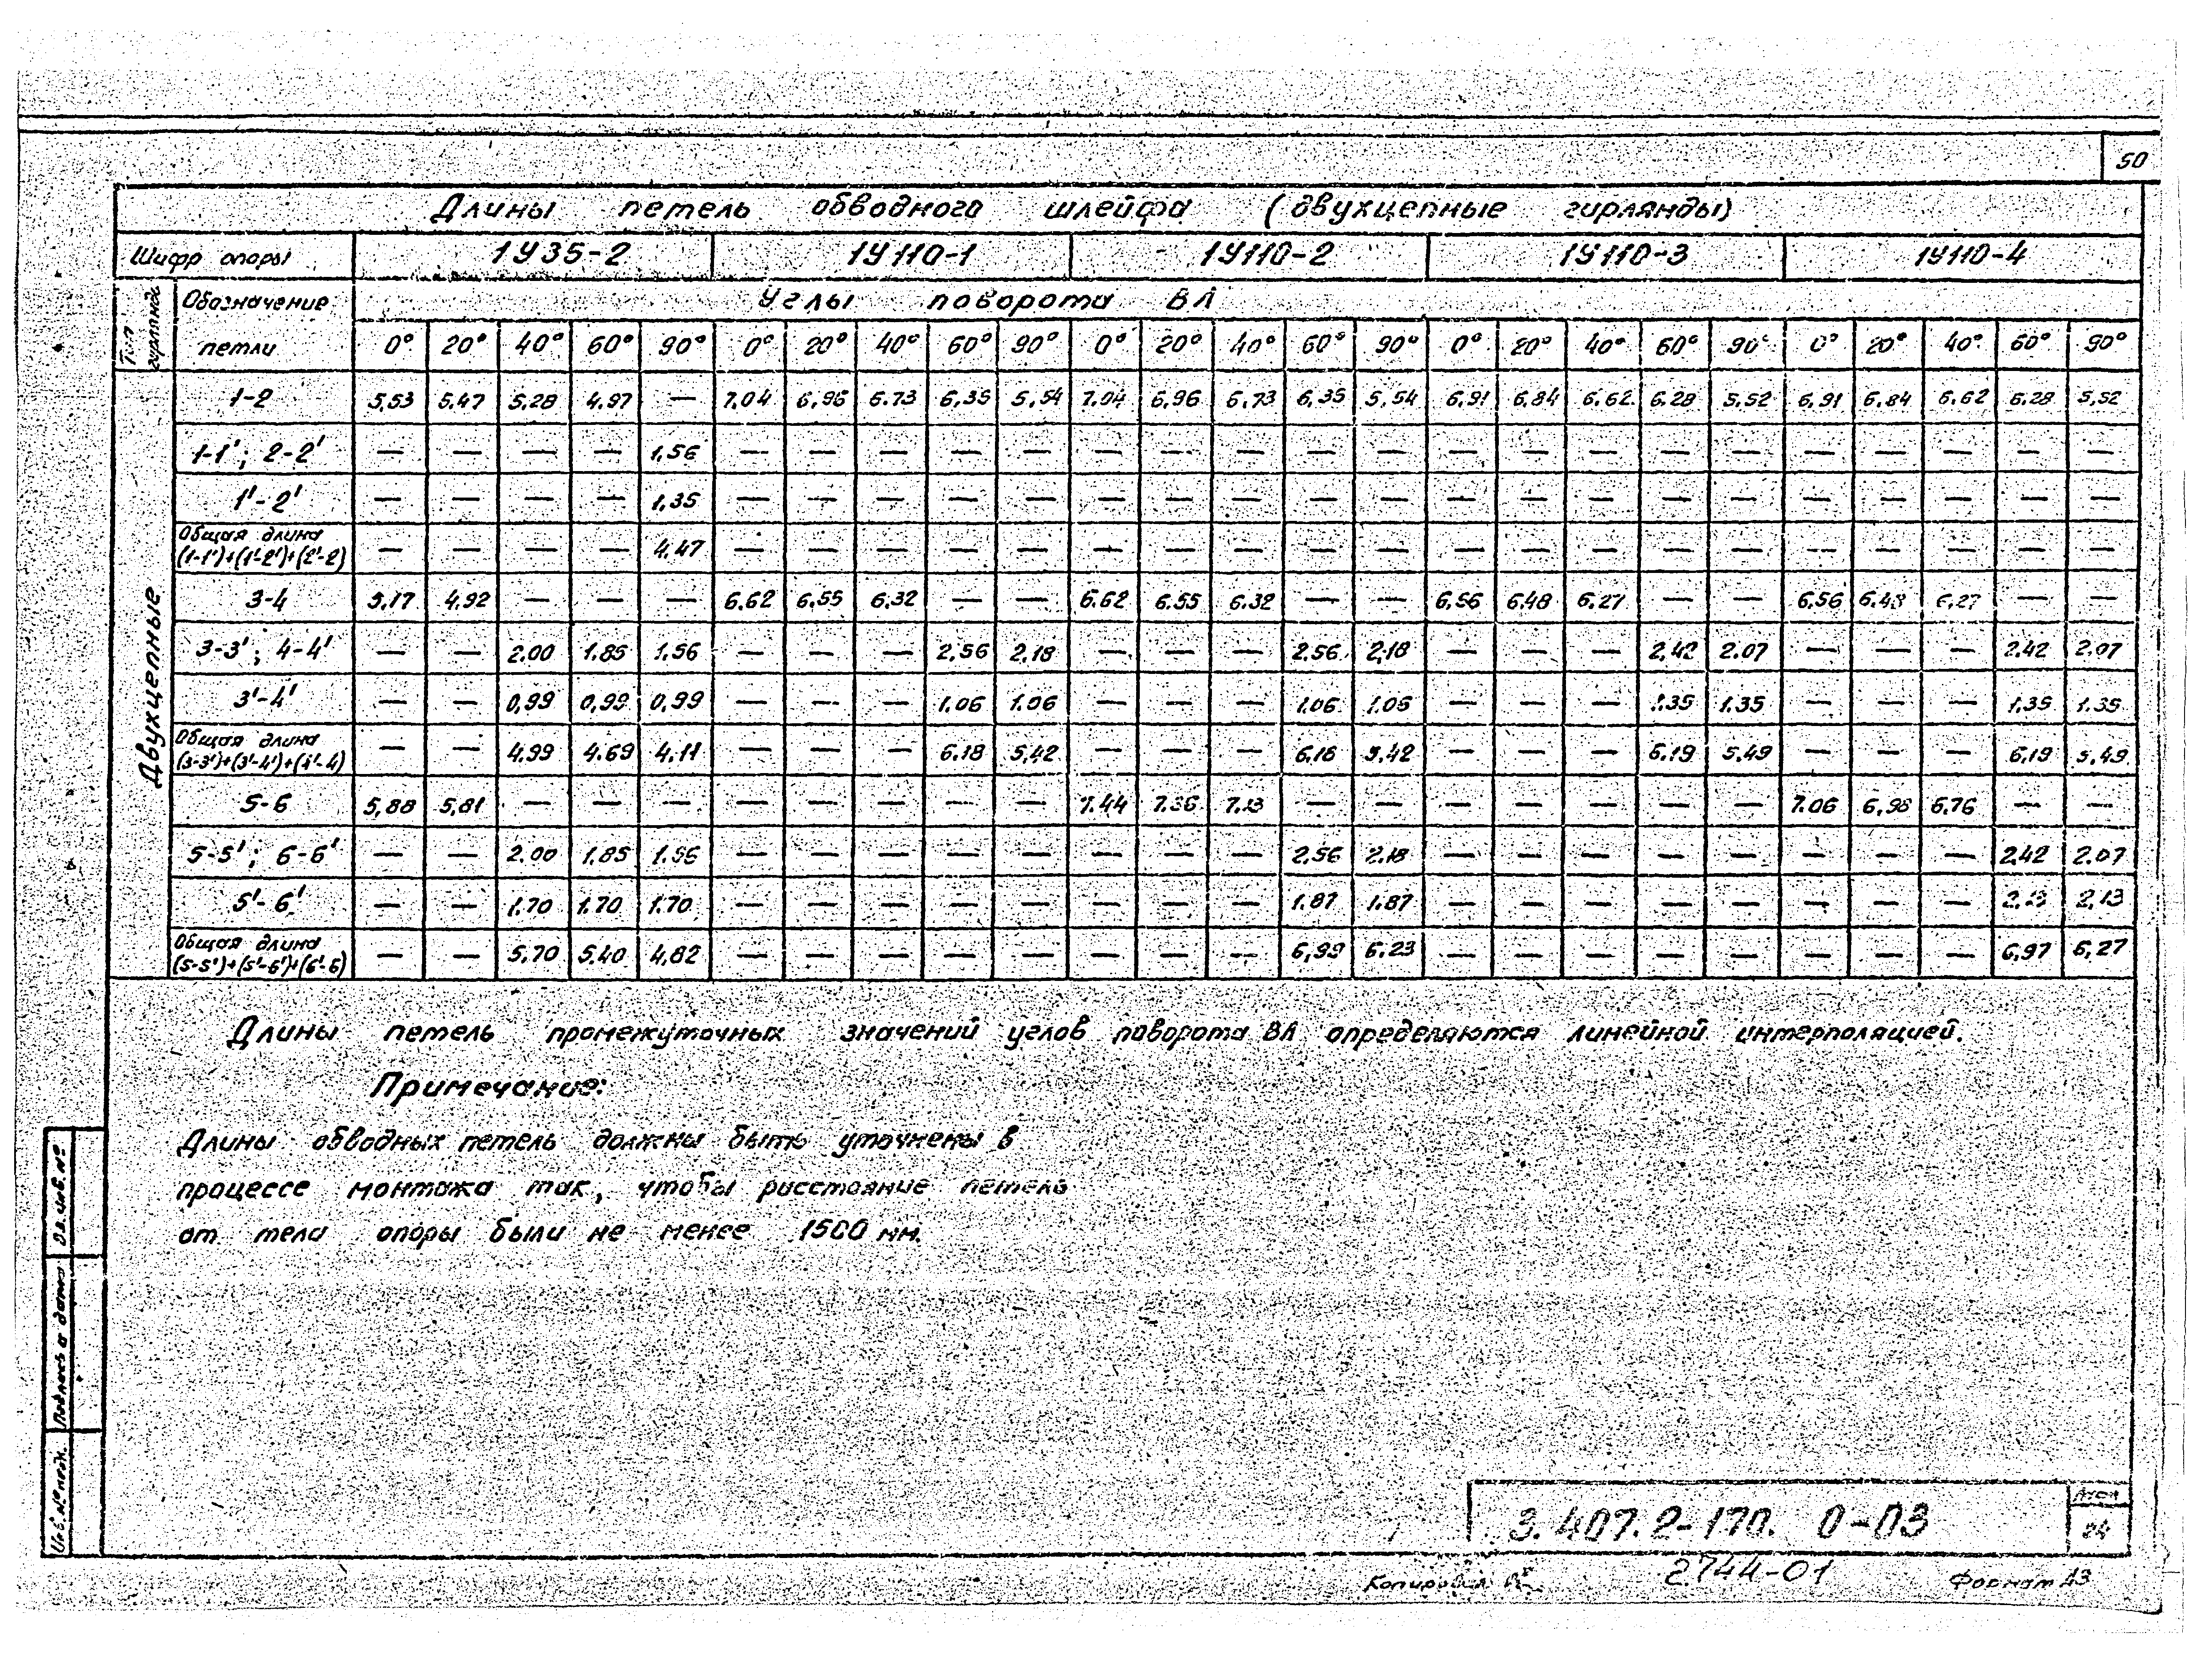 50
Длины петель обводного шлейфа (двухцепные гирлянды)
Шифр опоры 1У35-2 1У110-1 1У110-2 1У110-3 1У110-4
Тип гирлянды Обозначение петли Углы поворота ВЛ
0° 20° 40° 60° 90° 0° 20° 40° 60° 90° 0° 20° 40° 60° 90° 0° 20° 40° 60° 90° 0° 20° 40° 60° 90°
Двухцепные
1-2 5,53 5.47 5.28 4.97 — 7.04 6,96 6.73 6,35 5,54 7.04 6,96 6,73 6,35 5,54 6,91 6,84 6,62 6.28 5,52 6,91 6,84 6,62 6.28 5,52
1-1'; 2-2' — — — — 1,56 — — — — — — — — — — — — — — — — — — — —
1'-2' — — — — 1,35 — — — — — — — — — — — — — — — — — — — —
Общая длина
(1-1')+(1'-2')+(2'-2) — — — — 4,47 — — — — — — — — — — — — — — — — — — — —
3-4 5,17 4,92 — — — 6.62 6,55 6,32 — — 6.62 6.55 6.32 — — 6,56 6,48 6,27 — — 6,56 6.48 6,27 — —
3-3'; 4-4' — — 2.00 1.85 1.56 — — — 2,56 2,18 — — — 2,56 2,18 — — — 2,42 2.07 — — — 2.42 2.07
3'-4' — — 0,99 0,99 0,99 — — — 1.06 1.06 — — — 1.06 1.06 — — — 1.35 1.35 — — — 1,35 1.35
Общая длина
(3-3')+(3'-4')+(4'-4) — — 4.99 4.69 4.11 — — — 6.18 5,42 — — — 6,18 5.42 — — — 6.19 5.49 — — — 6,19 5,49
5-6 5,88 5,81 — — — — — — — — 7.44 7.36 7.13 — — — — — — — 7.06 6,98 6.76 — —
5-5'; 6-6' — — 2.00 1.85 1.56 — — — — — — — — 2,56 2.18 — — — — — — — — 2,42 2.07
5'-6' — — 1.70 1.70 1.70 — — — — — — — — 1.87 1.87 — — — — — — — — 2,13 2,13
Общая длина
(5-5')+(5'-6')+(6'-6) — — 5.70 5.40 4,82 — — — — — — — — 6,99 6.23 — — — — — — — — 6,97 6,27
Длины петель промежуточных значений углов поворота ВЛ определяются линейной интерполяцией.
Примечание:
Длины обводных петель должны быть уточнены в
процессе монтажа так, чтобы расстояние петель
от тела опоры были не менее 1500 мм.
Инв. № подл. Подпись и дата Вз. инв. №
3.407.2-170. 0-03 Лист
24
Копировал 2744-01 Формат А3